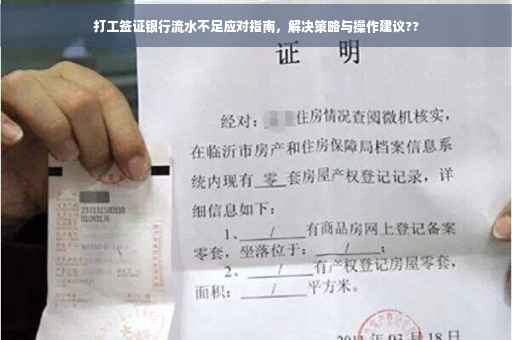 打工签证银行流水不足应对指南，解决策略与操作建议??
证 明
经对：住房情况查阅微机核实，
在临沂市房产和住房保障局档案信息系
统内现有 零 套房屋产权登记记录，详
细信息如下：
1、 / 有商品房网上登记备案
零套，坐落位于： / ；
2、 / 有产权登记房屋零套，
面积： / 平方米。
18日